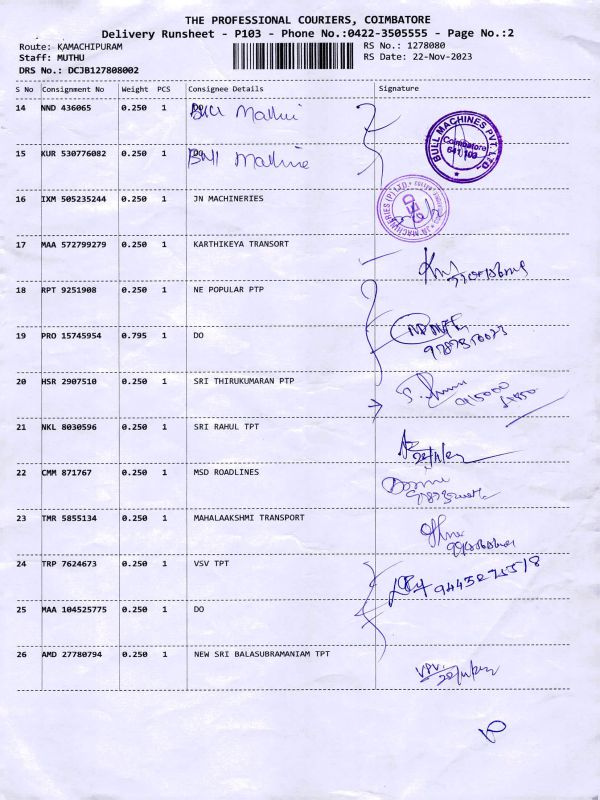 THE PROFESSIONAL COURIERS, COIMBATORE
Delivery Runsheet - P103 - Phone No.:0422-3505555 - Page No.:2
Route: KAMACHIPURAM RS No.: 1278080
Staff: MUTHU RS Date: 22-Nov-2023
DRS No.: DCJB127808002
S No Consignment No Weight PCS Consignee Details Signature
14 NND 436065 0.250 1 Bull
15 KUR 530776082 0.250 1 Bull Mathine
BULL MACHINES PVT. LTD.
Coimbatore
641 103
16 IXM 505235244 0.250 1 JN MACHINERIES
JN MACHINERIES (P) LTD
17 MAA 572799279 0.250 1 KARTHIKEYA TRANSORT
18 RPT 9251908 0.250 1 NE POPULAR PTP
19 PRO 15745954 0.795 1 DO
20 HSR 2907510 0.250 1 SRI THIRUKUMARAN PTP
21 NKL 8030596 0.250 1 SRI RAHUL TPT
22 CMM 871767 0.250 1 MSD ROADLINES
23 TMR 5855134 0.250 1 MAHALAAKSHMI TRANSPORT
24 TRP 7624673 0.250 1 VSV TPT
25 MAA 104525775 0.250 1 DO
26 AMD 27780794 0.250 1 NEW SRI BALASUBRAMANIAM TPT